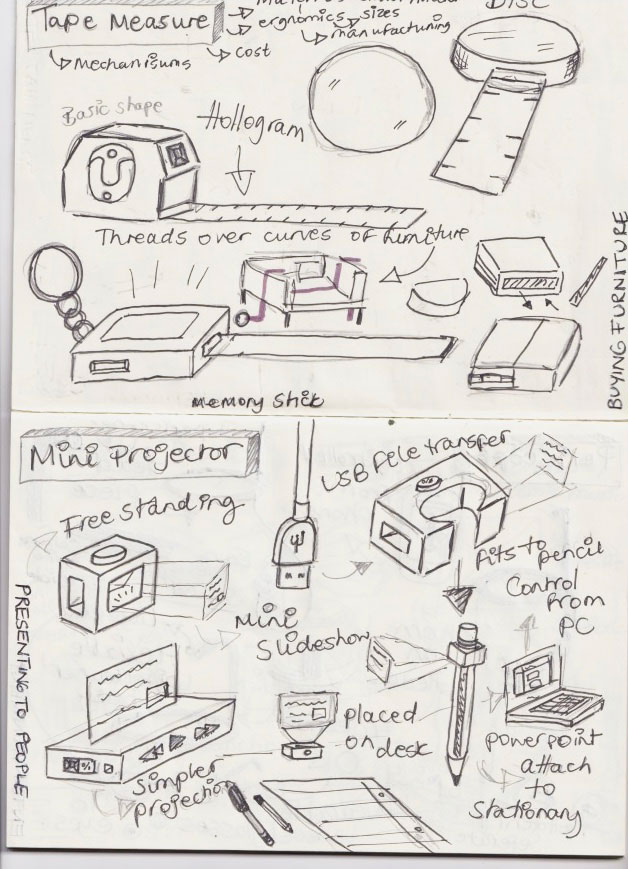 Tape Measure
ergnomics
sizes
manufactuning
Mechanisums
cost
DISC
Basic shape
Hollogram
Threads over curves of furniture
BUYING FURNITURE
Memory Stick
Mini Projector
Free Standing
USB File transfer
fits to pencil
Control
From
PC
Mini
Slideshow
placed
on desk
powerpoint
attach
to
stationary
Simpler
projection
PRESENTING TO PEOPLE